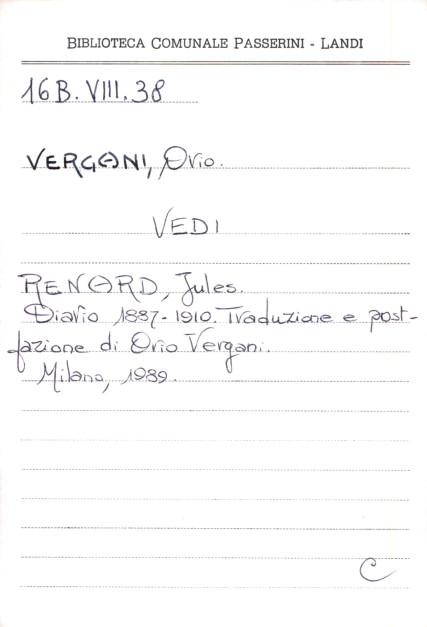 BIBLIOTECA COMUNALE PASSERINI - LANDI
16B.VIII.38
VERGANI, Orio.
VEDI
RENARD, Jules.
Diario 1887-1910. Traduzione e post-
fazione di Orio Vergani.
Milano, 1989.
C